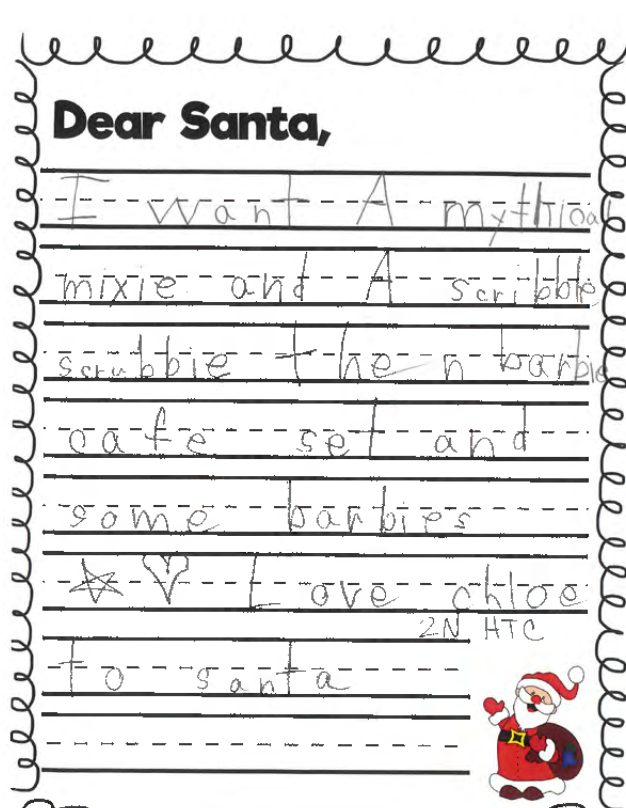 Dear Santa,
I want A mythical
mixie and A scribble
scrubbie then barbie
cafe set and
some barbies
Love chloe
2N HTC
to santa